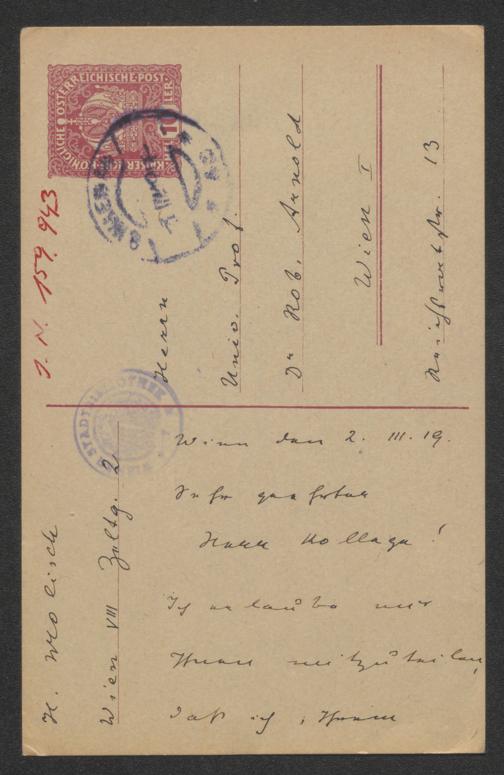 KAISERLICHE KÖNIGLICHE ÖSTERREICHISCHE POST
10
HELLER
WIEN
J. N. 159.943
Herrn
Univ. Prof.
Dr Rob. Arnold
Wien I
Reichsratstr. 13
STADTBIBLIOTHEK
WIEN
H. Wolisch
Wien VIII Zeltg. 2
Wien den 2. III. 19.
Sehr geehrter
Herr Kollege!
Ich erlaube mir
Ihnen mitzuteilen,
daß ich, Ihrem